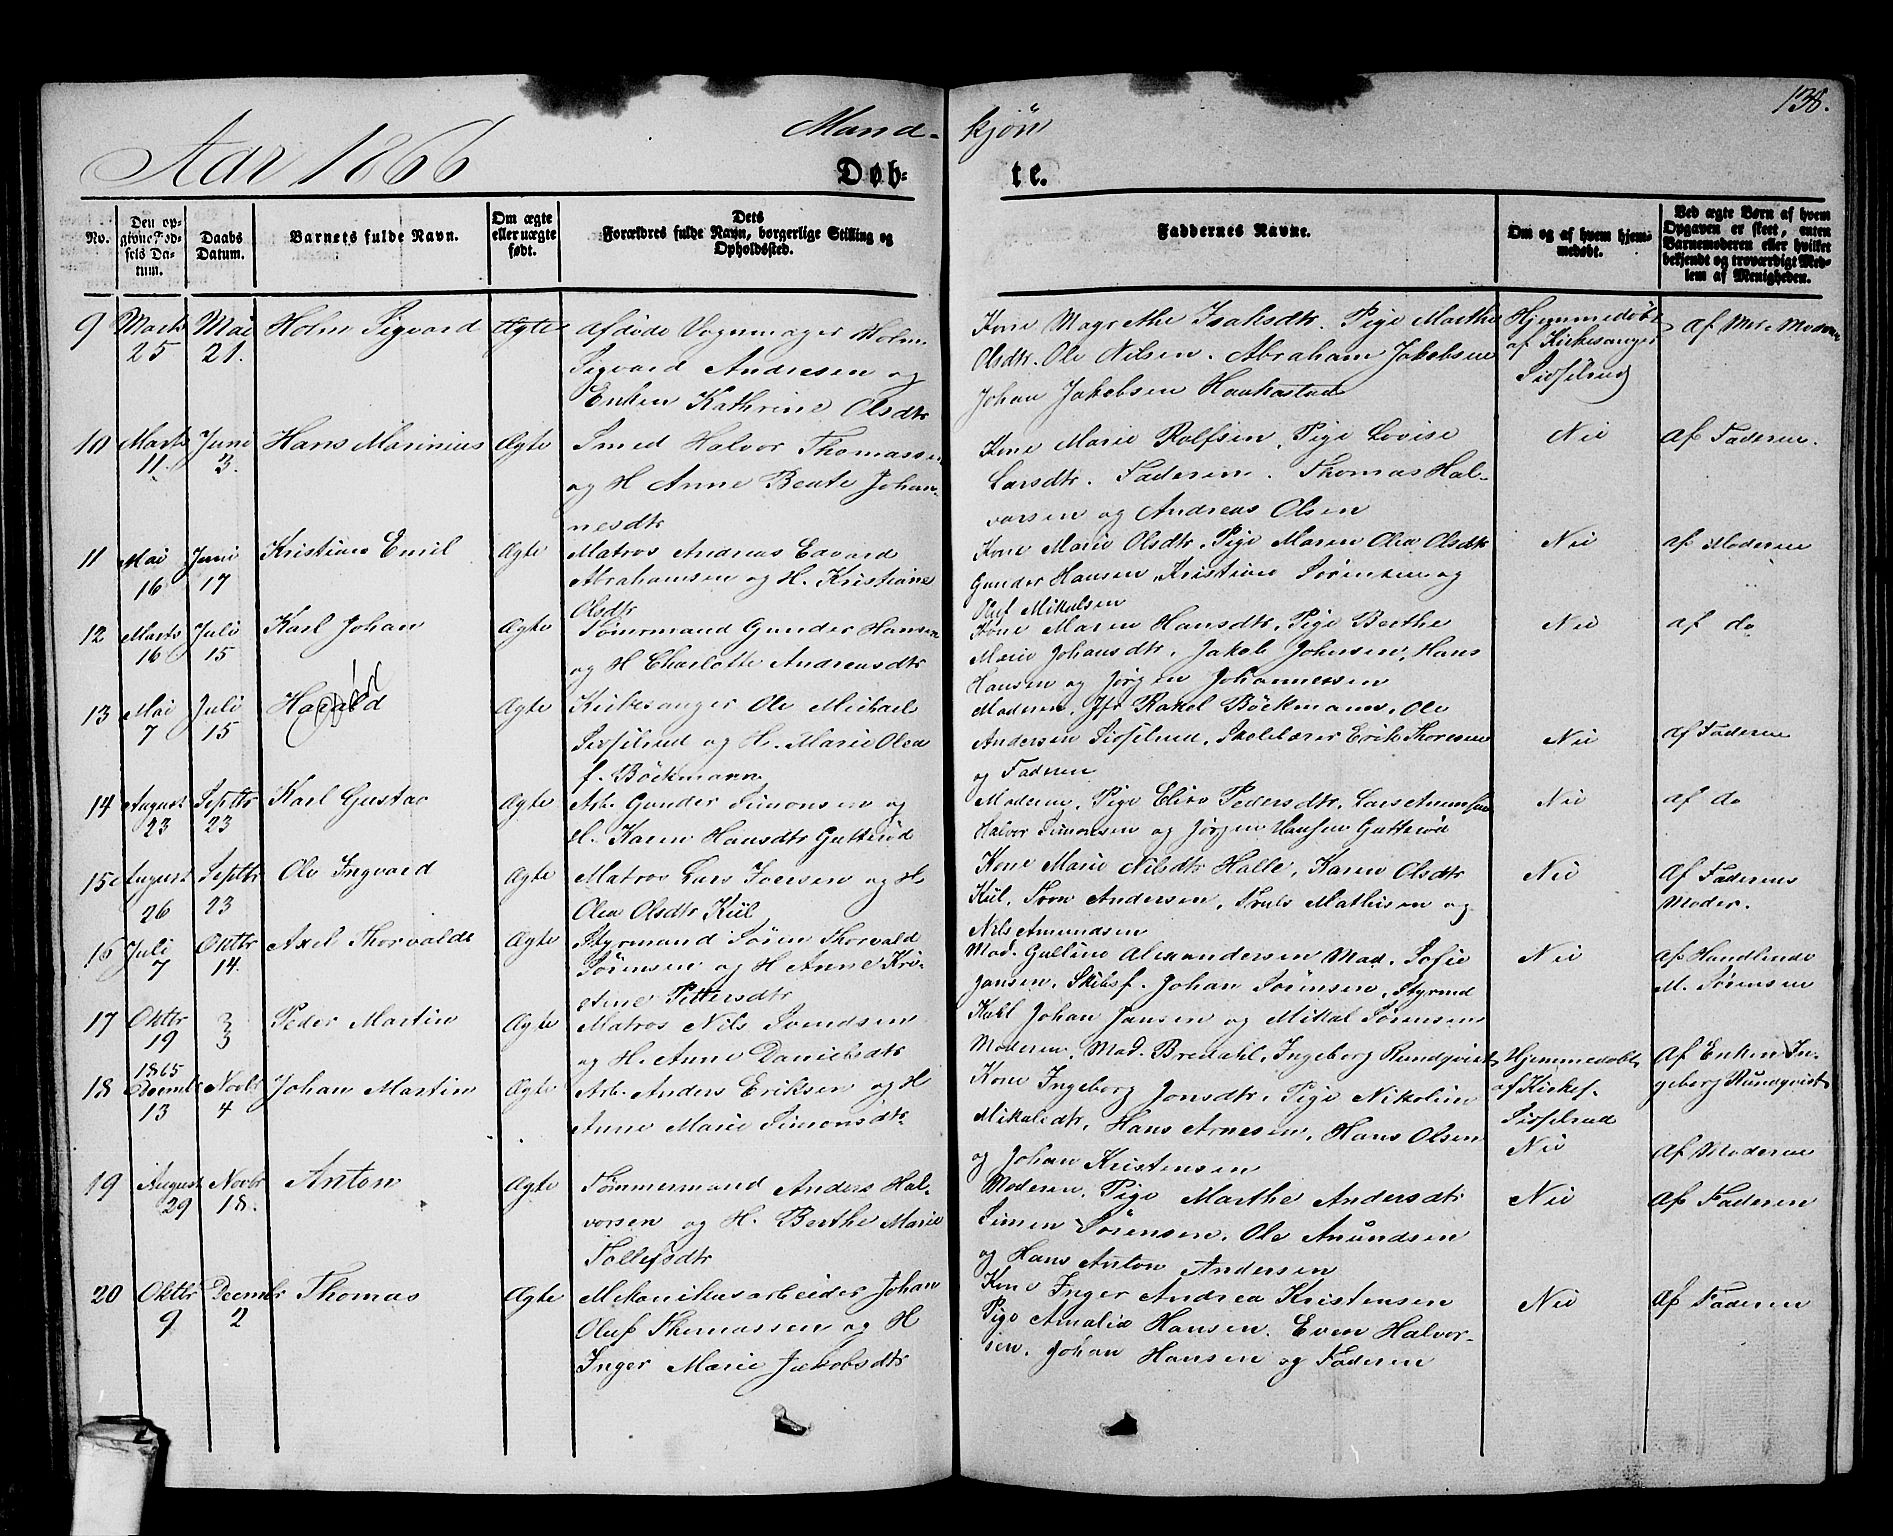 138.
Aar 1866
Mand-
kjøn
Døb-
te.
No.
Den op-
givne Fød-
sels Da-
tum.
Daabs
Datum.
Barnets fulde Navn.
Om ægte
eller uægte
født.
Dets
Forældres fulde Navn, borgerlige Stilling og
Opholdssted.
Faddernes Navne.
Om og af hvem hjem-
medøbt.
Ved ægte Børn af hvem
Opgaven er skeet, enten
Barnemoderen eller hvilket
bekjendt og troværdigt Med-
lem af Menigheden.
9 Marts 25 Mai 21. Holm Sigvard Ægte
Afdøde Vognmager Holm
Sigvard Andresen og
Enken Kathrine Olsdtr
Kone Magrethe Isaksdtr. Pige Marthe
Olsdtr. Ole Nilsen. Abraham Jakobsen
Johan Jakobsen Haukastad
Hjemmedøbt
af Kirkesanger
Sidselrud
Af Moderen
10 Marts 11. Juni 3. Hans Marinius Ægte
Smed Halvor Thomassen
og H Anne Beate Johan-
nesdtr
Kone Marie Rolfsen, Pige Lovise
Larsdtr. Faderen. Thomas Hal-
vorsen og Andreas Olsen
Nei
Af Faderen.
11 Mai 16 Juni 17 Kristian Emil Ægte
Matros Andreas Edvard
Abrahamsen og H. Kristiane
Olsdtr
Kone Marie Olsdtr, Pige Maren Olea Olsdtr
Gunder Hansen, Kristian Sørensen og
Mikalsen
Nei
af Moderen
12 Marts 16 Juli 15 Karl Johan Ægte
Tømrmand Gunder Hansen
og H Charlotte Andreasdtr
Kone Maren Hansdtr, Pige Berthe
Marie Johansdtr, Jakob Johnsen, Hans
Hansen og Jørgen Johannessen
Nei
af do
13 Mai 7 Juli 15 Harald Ægte
død
Kirkesanger Ole Michael
Sidselrud og H. Marie Olea
f. Böckmann
Moderen, Jfr Rakel Böckmann, Ole
Andersen Sidselrud, Skolelærer Erik Thoresen
og Faderen
Nei
Af Faderen
14 August 23 Septbr 23 Karl Gustav Ægte
Arb. Gunder Simonsen og
H. Karen Hansdtr Gutterød
Moderen, Pige Elise Pedersdtr. Lars Amundsen
Halvor Simonsen og Jørgen Hansen Gutterød
Nei
af do
15 August 26 Septbr 23 Ole Ingvard Ægte
Matros Lars Iversen og H.
Olea Olsdtr Kiil
Kone Marie Nilsdtr Halle, Karen Olsdtr
Kiil, Sven Andersen, Truls Mathisen og
Nils Amundsen
Nei
Af Faderens
Moder.
16 Juli 7 Oktbr 14. Axel Thorvald Ægte
Styrmand Søren Thorvald
Sørensen og H Anne Kri-
stine Pettersdtr
Mad. Gulline Alexandersen Mad. Sofie
Jansen, Skibsf. Johan Sørensen, Styrmd
Karl Johan Jansen og Mikal Sørensen
Nei
af Handlende
M. Sørensen
17 Oktbr 19 3/3 Peder Martin Ægte
Matros Nils Svendsen
og H. Anne Danielsdtr
Moderen, Mad. Bredahl, Ingeborg Rundqvist
Hjemmedøbt
af Kirkes.
Sidselrud
Af Enken In-
geborg Rundqvist
18 1865 Decembr 13 Novbr 4 Johan Martin Ægte
Arb. Anders Eriksen og H
Anne Marie Simonsdtr
Kone Ingeborg Jonsdtr, Pige Nikoline
Mikalsdtr, Hans Arnesen, Hans Olsen
og Johan Kristensen
Nei
Af Moderen
19 August 29 Novbr 18. Anton Ægte
Tømmermand Anders Hal-
vorsen og H. Berthe Marie
Tollefsdtr
Moderen, Pige Marthe Andersdtr
Simen Sørensen, Ole Amundsen
og Hans Anton Andersen
Nei
Af Faderen
20 Oktbr 9 Decembr 2 Thomas Ægte
Mekanikusarbeider Johan
Oluf Thomassen og H
Inger Marie Jakobsdtr
Kone Inger Andrea Kristensen
Pige Amalia Hansen. Even Halvor-
sen. Johan Hansen og Faderen
Nei
Af Faderen